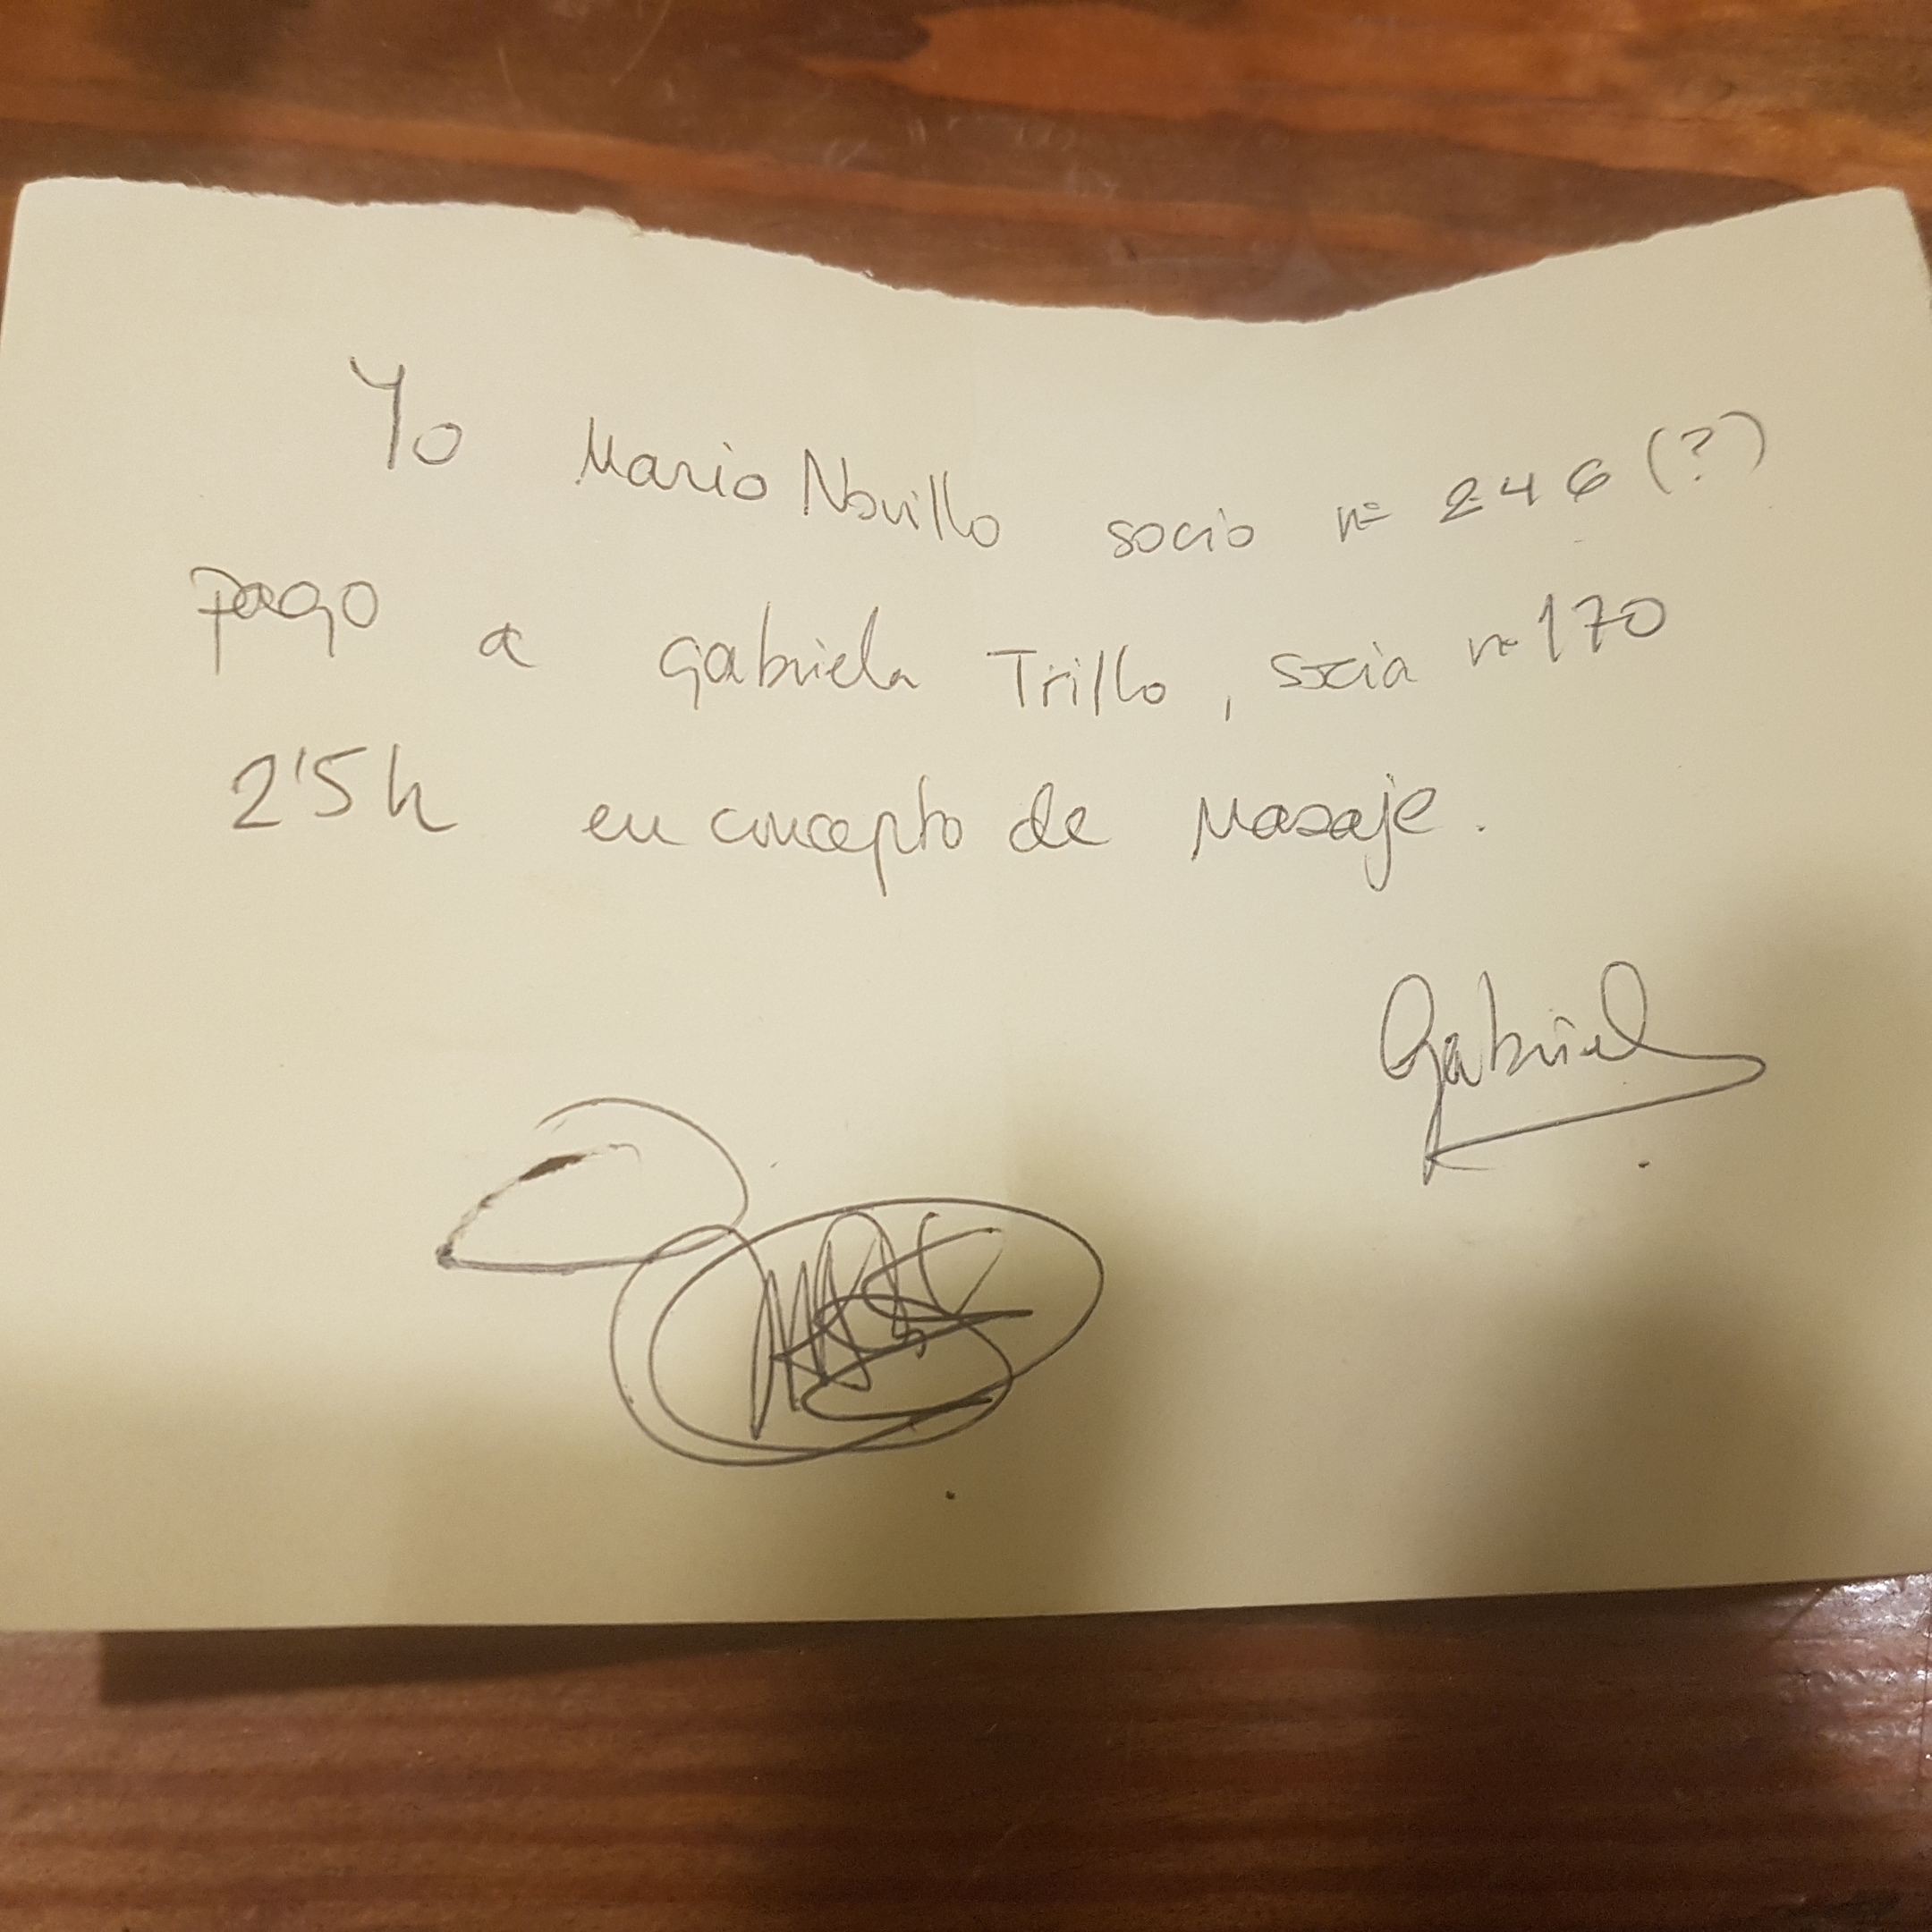 Yo Mario Novillo socio nº 246 (?)
pago a Gabriela Trillo, socia nº 170
2'5h en concepto de masaje.
Gabriel